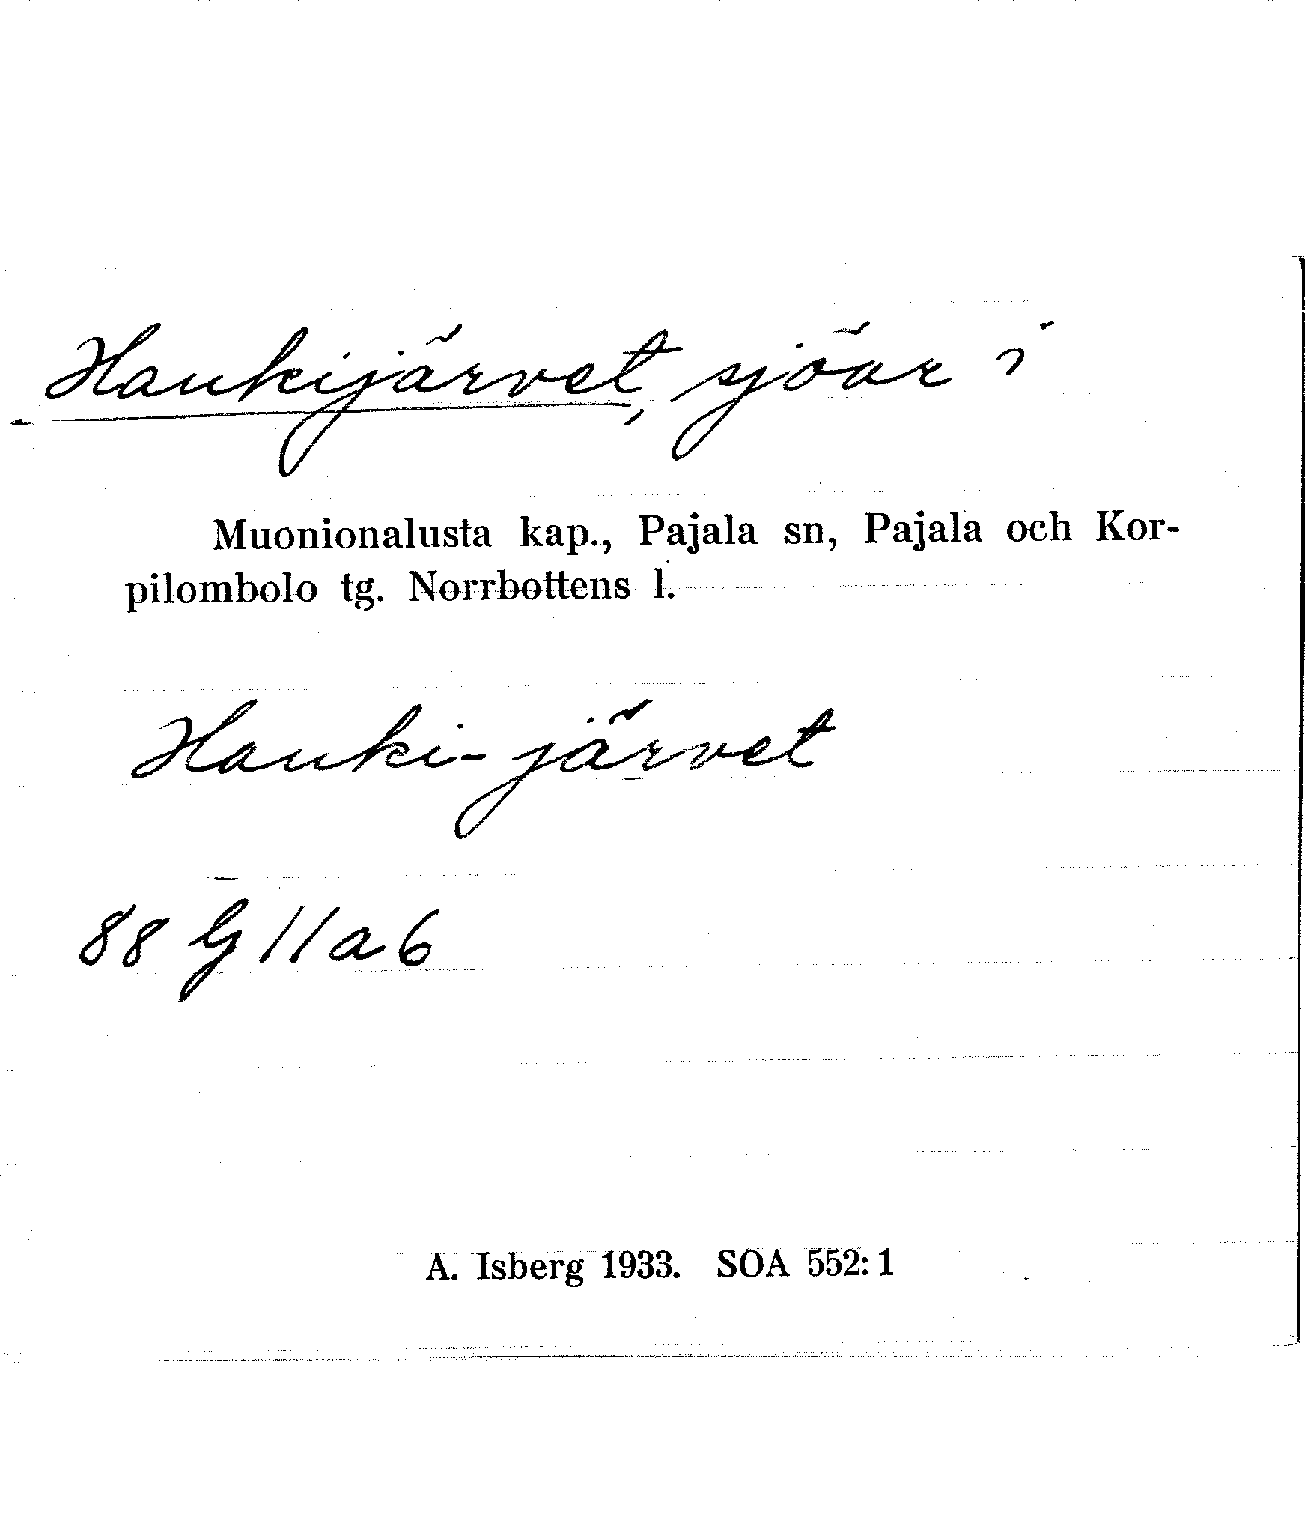 Haukijärvet, sjöar i
Muonionalusta kap., Pajala sn, Pajala och Kor-
pilombolo tg. Norrbottens l.
Hauki-järvet
88 G 11 a 6
A. Isberg 1933. SOA 552:1